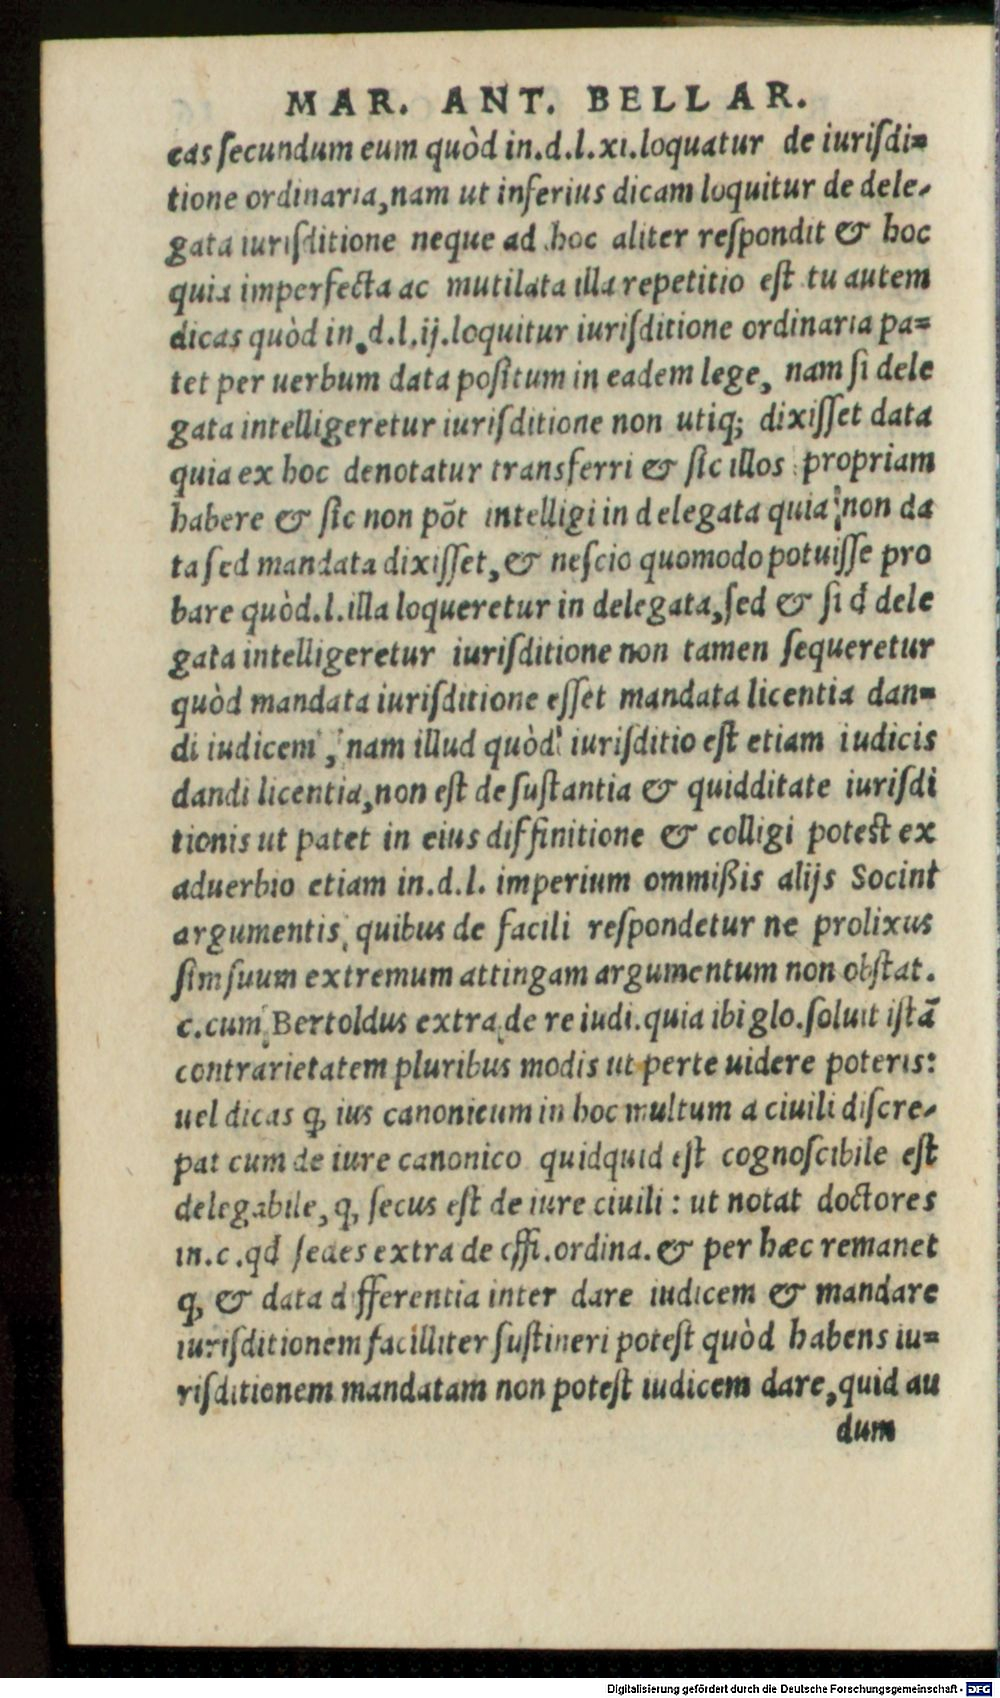 MAR. ANT. BELLAR.
eas ſecundum eum quòd in.d.l.xi.loquatur de iuriſdi=
tione ordinaria,nam ut inferius dicam loquitur de dele-
gata iuriſditione neque ad hoc aliter reſpondit & hoc
quia imperfecta ac mutilata illa repetitio eſt tu autem
dicas quòd in.d.l.ij.loquitur iuriſditione ordinaria pa=
tet per uerbum data poſitum in eadem lege, nam ſi dele
gata intelligeretur iuriſditione non utiq; dixiſſet data
quia ex hoc denotatur transferri & ſic illos propriam
habere & ſic non põt intelligi in delegata quia non da
ta ſed mandata dixiſſet,& neſcio quomodo potuiſſe pro
bare quòd.l.illa loqueretur in delegata,ſed & ſi đ dele
gata intelligeretur iuriſditione non tamen ſequeretur
quòd mandata iuriſditione eſſet mandata licentia dan=
di iudicem, nam illud quòd iuriſditio eſt etiam iudicis
dandi licentia,non eſt de ſuſtantia & quidditate iuriſdi
tionis ut patet in eius diffinitione & colligi poteſt ex
aduerbio etiam in.d.l. imperium ommißis alijs Socini
argumentis, quibus de facili reſpondetur ne prolixus
ſim ſuum extremum attingam argumentum non obſtat.
c.cum Bertoldus extra de re iudi.quia ibi glo.ſoluit iſtã
contrarietatem pluribus modis ut perte uidere poteris:
uel dicas q, ius canonicum in hoc multum a ciuili diſcre-
pat cum de iure canonico quidquid eſt cognoſcibile eſt
delegabile, q, ſecus eſt de iure ciuili : ut notat doctores
in.c.qd ſedes extra de offi.ordina.& per hæc remanet
q, & data differentia inter dare iudicem & mandare
iuriſditionem facilliter ſuſtineri poteſt quòd habens iu=
riſditionem mandatam non poteſt iudicem dare,quid au
dum
Digitalisierung gefördert durch die Deutsche Forschungsgemeinschaft - DFG